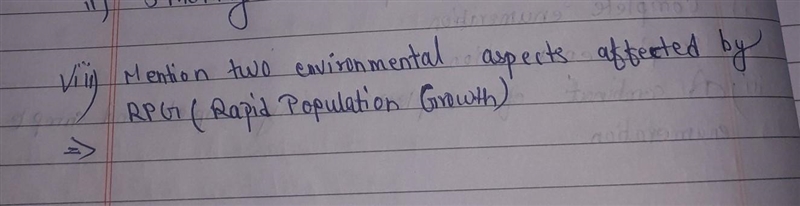 ii)
viii) Mention two environmental aspects affected by
RPG (Rapid Population Growth)
⇒